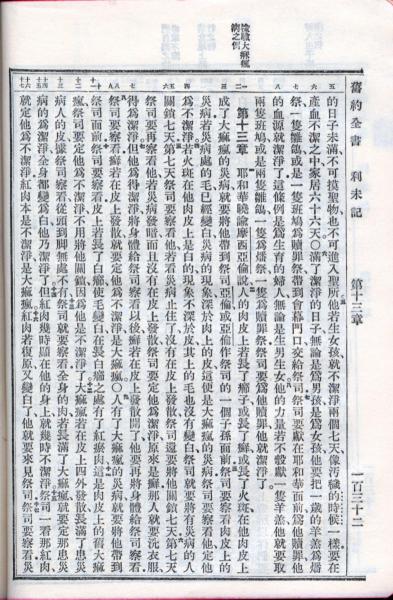 舊約全書 利未記 第十三章 一百三十二
的日子未滿不可摸聖物也不可進入聖所他若生女孩就不潔淨兩個七天像汚穢的時候一樣要在
產血不潔之中家居六十六天〇滿了潔淨的日子無論是爲男孩是爲女孩他要把一歲的羊羔爲燔
祭一隻雛鴿一隻斑鳩爲贖罪祭帶到會幕門口交給祭司祭司要獻在耶和華面前爲他贖罪他
的血源就潔淨了這條例是爲生育的婦人無論是生男生女他的力量若不彀獻一隻羊羔他就要取
兩隻斑鳩或是兩隻雛鴿一隻爲燔祭一隻爲贖罪祭祭司要爲他贖罪他就潔淨了。
第十三章 耶和華曉諭摩西亞倫說人的肉皮上若長了癤子或長了癬或長了火斑在他肉皮上
成了大痲瘋的災病就要將他帶到祭司亞倫或亞倫作祭司的一個子孫面前祭司要察看肉皮上的
災病若災病處的毛已經變白災病的現象深於肉上的皮這便是大痲瘋的災病祭司要察看他定他
爲不潔淨若火斑在他肉皮上是白的現象不深於皮其上的毛也沒有變白祭司就要將有災病的人
關鎖七天第七天祭司要察看他若看災病止住了沒有在皮上發散祭司還要將他關鎖七天第七天
祭司要再察看他若災病發暗而且沒有在皮上發散祭司要定他爲潔淨原來是癬那人就要洗衣服
得爲潔淨但他爲得潔淨將身體給祭司察看以後癬若在皮上發散開了他要再將身體給祭司察看
祭司要察看癬若在皮上發散就要定他爲不潔淨是大痲瘋〇人有了大痲瘋的災病就要將他帶到
祭司面前祭司要察看皮上若長了白癤使毛變白在長白癤之處有了紅瘀肉這是肉皮上的舊大痲
瘋祭司要定他爲不潔淨不用將他關鎖因爲他是不潔淨了大痲瘋若在皮上四外發散長滿了患災
病人的皮據祭司察看從頭到脚無處不有祭司就要察看全身的肉若長滿了大痲瘋就要定那患災
病的爲潔淨全身都變爲白他乃潔淨了但紅肉幾時顯在他的身上就幾時不潔淨祭司一看那紅肉
就定他爲不潔淨紅肉本是不潔淨是大痲瘋紅肉若復原又變白了他就要來見祭司祭司要察看災